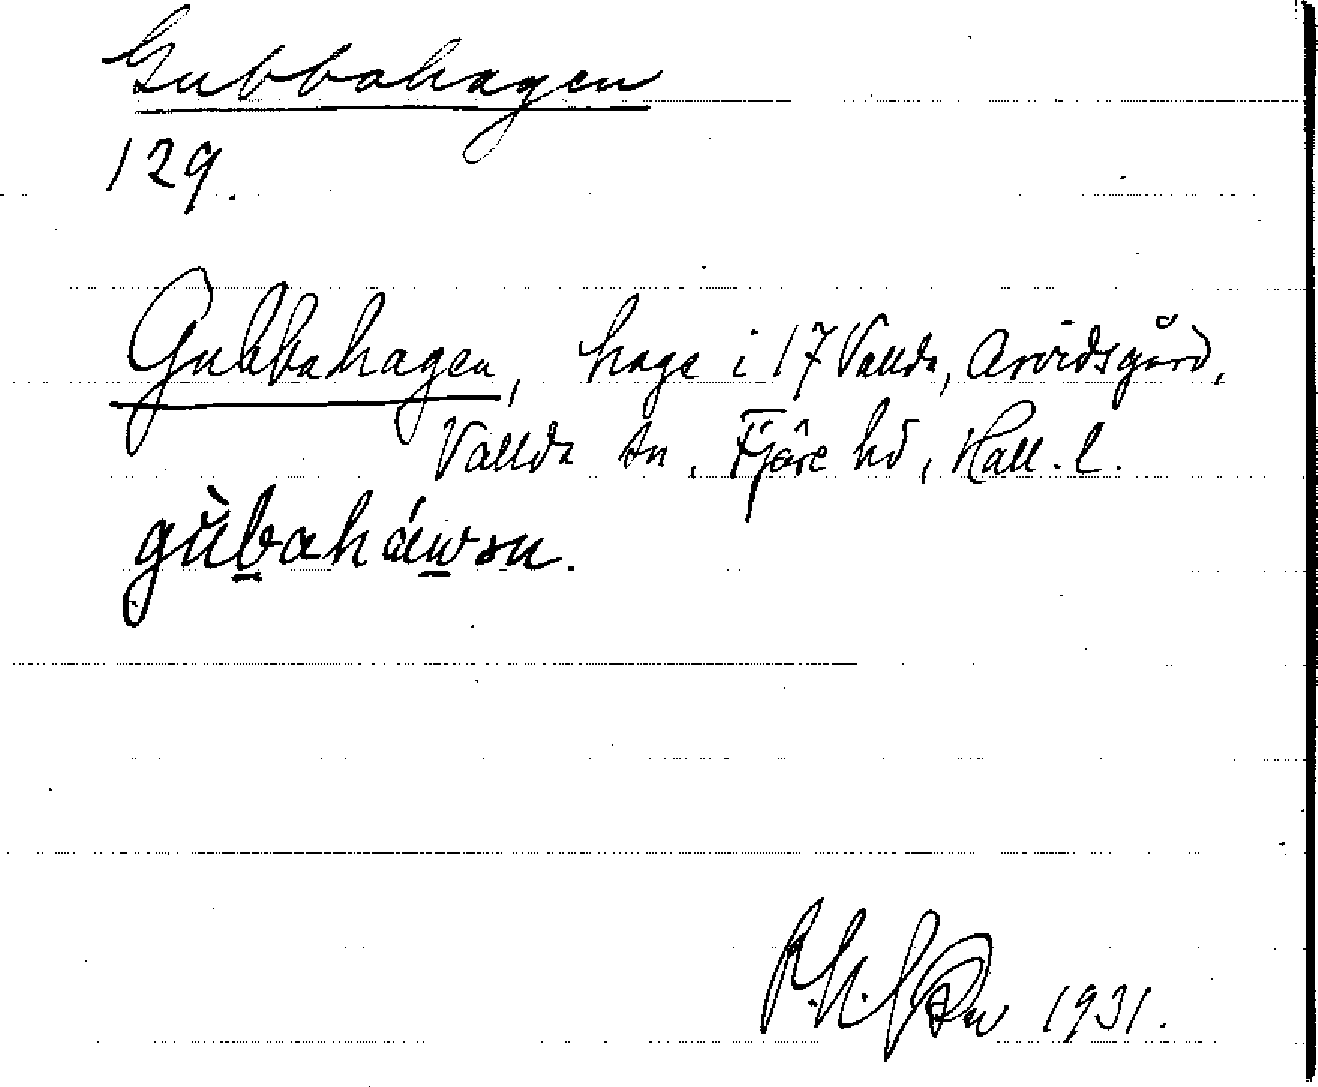 Gubbahagen
129.
Gubbahagen, hage i 17 Vallda, Arvidsgård,
Vallda sn, Fjäre hd, Hall. l.
gùbaháwən.
1931.